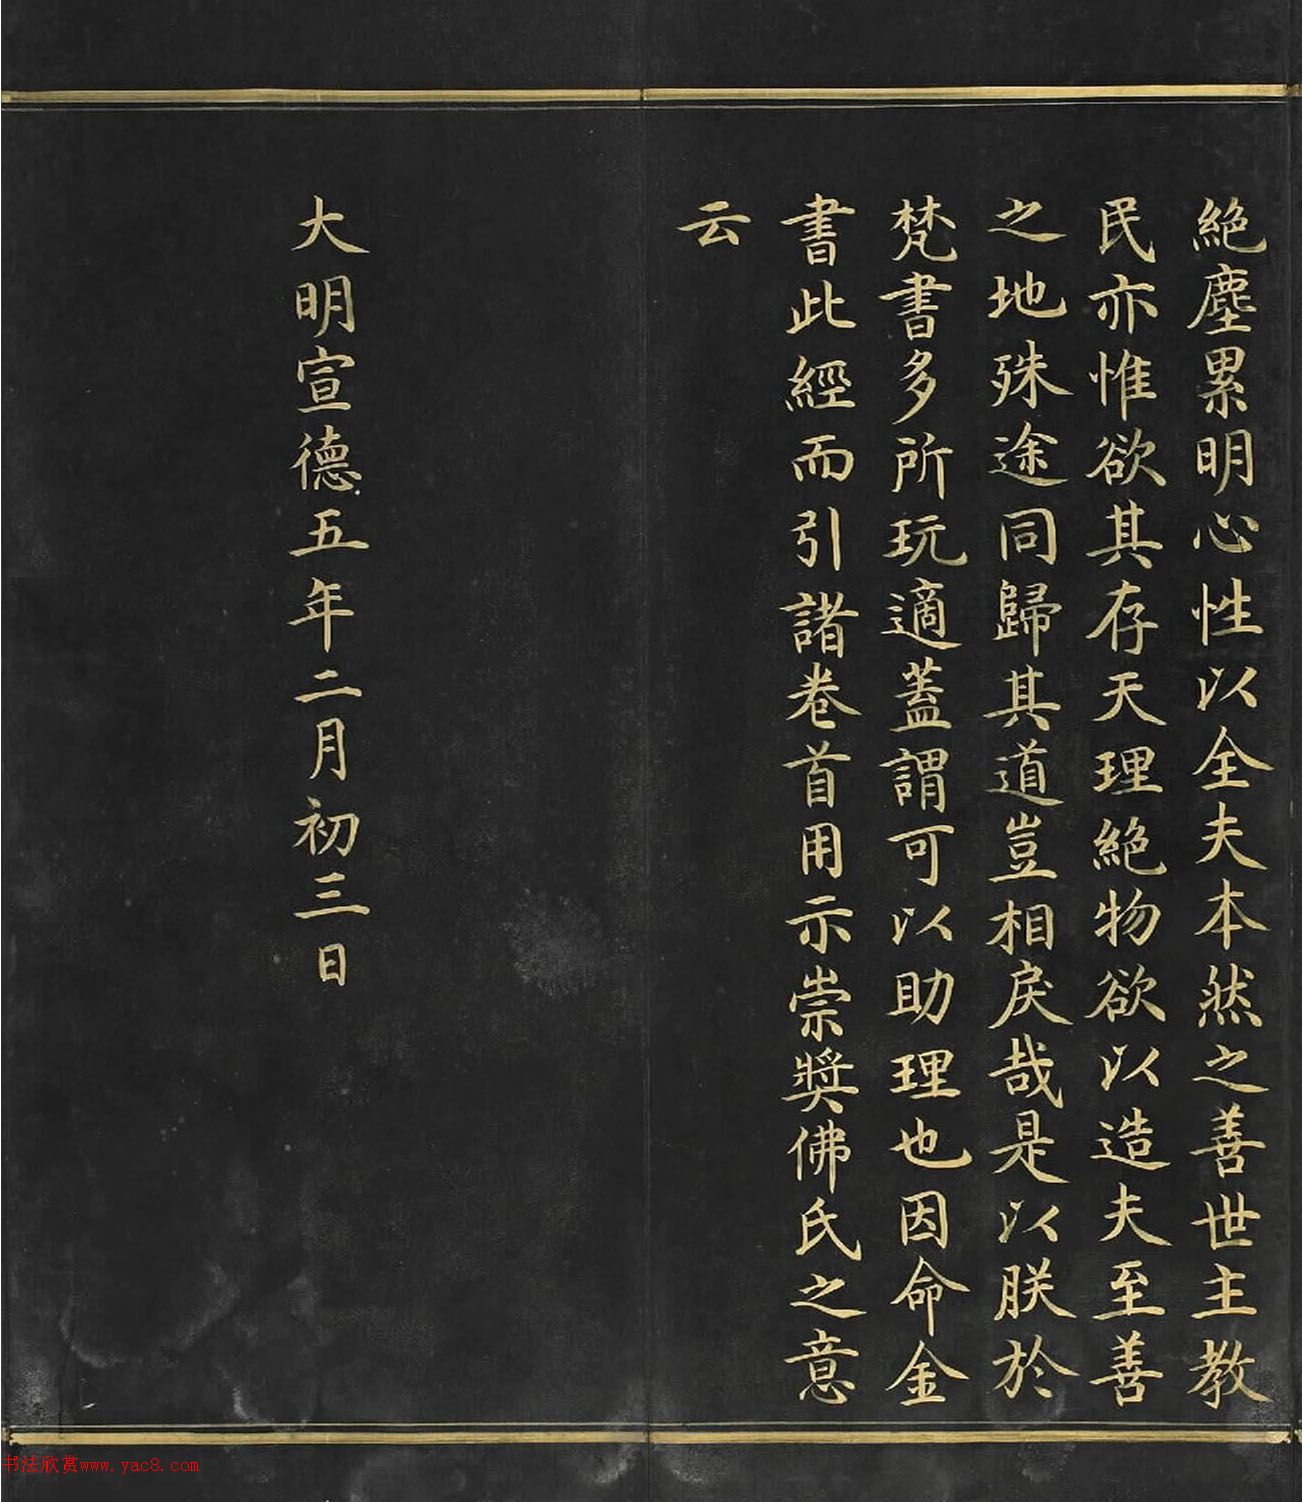 絶塵累明心性以全夫本然之善世主教
民亦惟欲其存天理絶物欲以造夫至善
之地殊途同歸其道豈相戾哉是以朕於
梵書多所玩適蓋謂可以助理也因命金
書此經而引諸卷首用示崇奬佛氏之意
云
大明宣德五年二月初三日
书法欣赏www.yac8.com